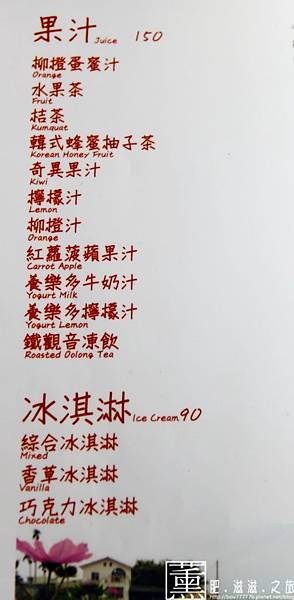 果汁 Juice 150
柳橙蛋蜜汁
Orange
水果茶
Fruit
桔茶
Kumquat
韓式蜂蜜柚子茶
Korean Honey Fruit
奇異果汁
Kiwi
檸檬汁
Lemon
柳橙汁
Orange
紅蘿蔔蘋果汁
Carrot Apple
養樂多牛奶汁
Yogurt Milk
養樂多檸檬汁
Yogurt Lemon
鐵觀音凍飲
Roasted Oolong Tea
冰淇淋 Ice Cream 90
綜合冰淇淋
Mixed
香草冰淇淋
Vanilla
巧克力冰淇淋
Chocolate
薰 肥.滋滋.之旅